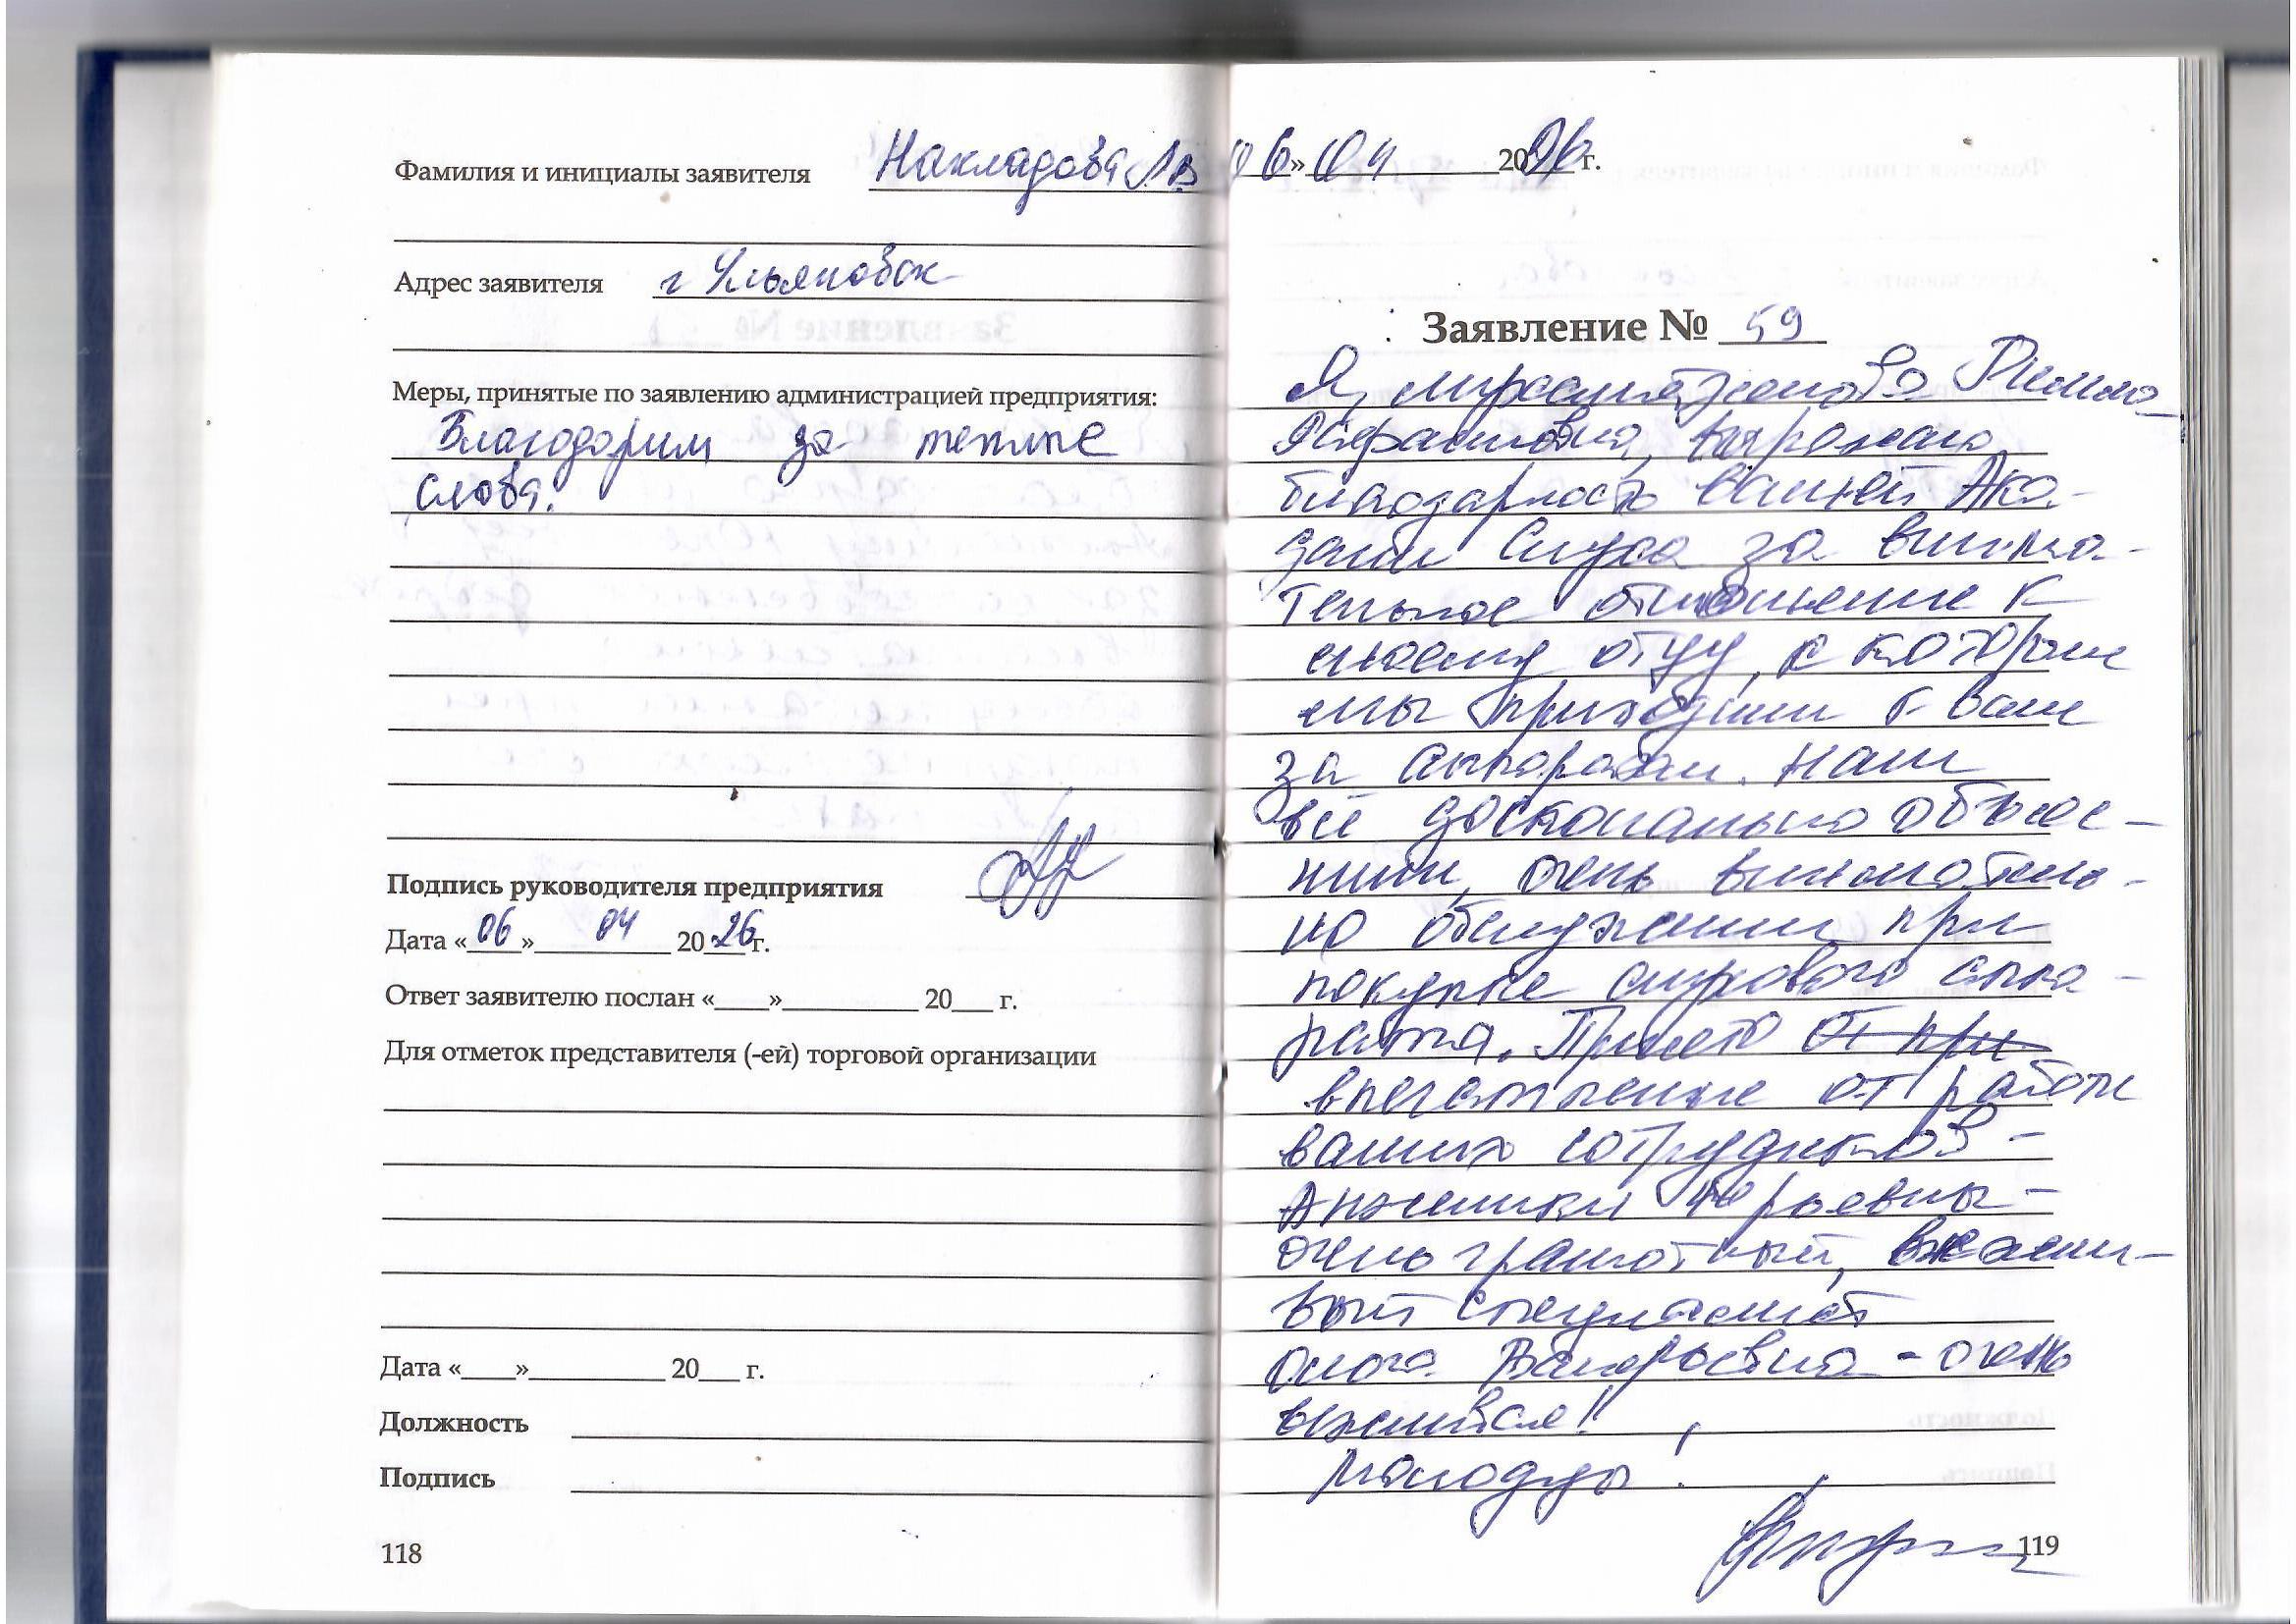 Фамилия и инициалы заявителя Накладова Л В
Адрес заявителя г Ульяновск
Меры, принятые по заявлению администрацией предприятия:
Благодарим за теплые
слова.
Подпись руководителя предприятия
Дата «06» 04 2026г.
Ответ заявителю послан «___»__________ 20___ г.
Для отметок представителя (-ей) торговой организации
Дата «____»__________ 20___ г.
Должность
Подпись
118
06» 04 2026г.
Заявление № 59
Я,
выражаю
благодарность вашей Ака-
демии Слуха за внима-
тельное отношение к
моему отцу, с которым
мы приходили к вам
за аппаратом. Нам
всё досконально объяс-
нили, очень вниматель-
но обслужили при
покупке слухового аппа-
рата. Приято от при
впечатление от работы
ваших сотрудников -
Анжелики Юрьевны -
очень грамотный, вежли-
вый специалист
Ольга Валерьевна - очень
вежливая!
Молодцы!
119